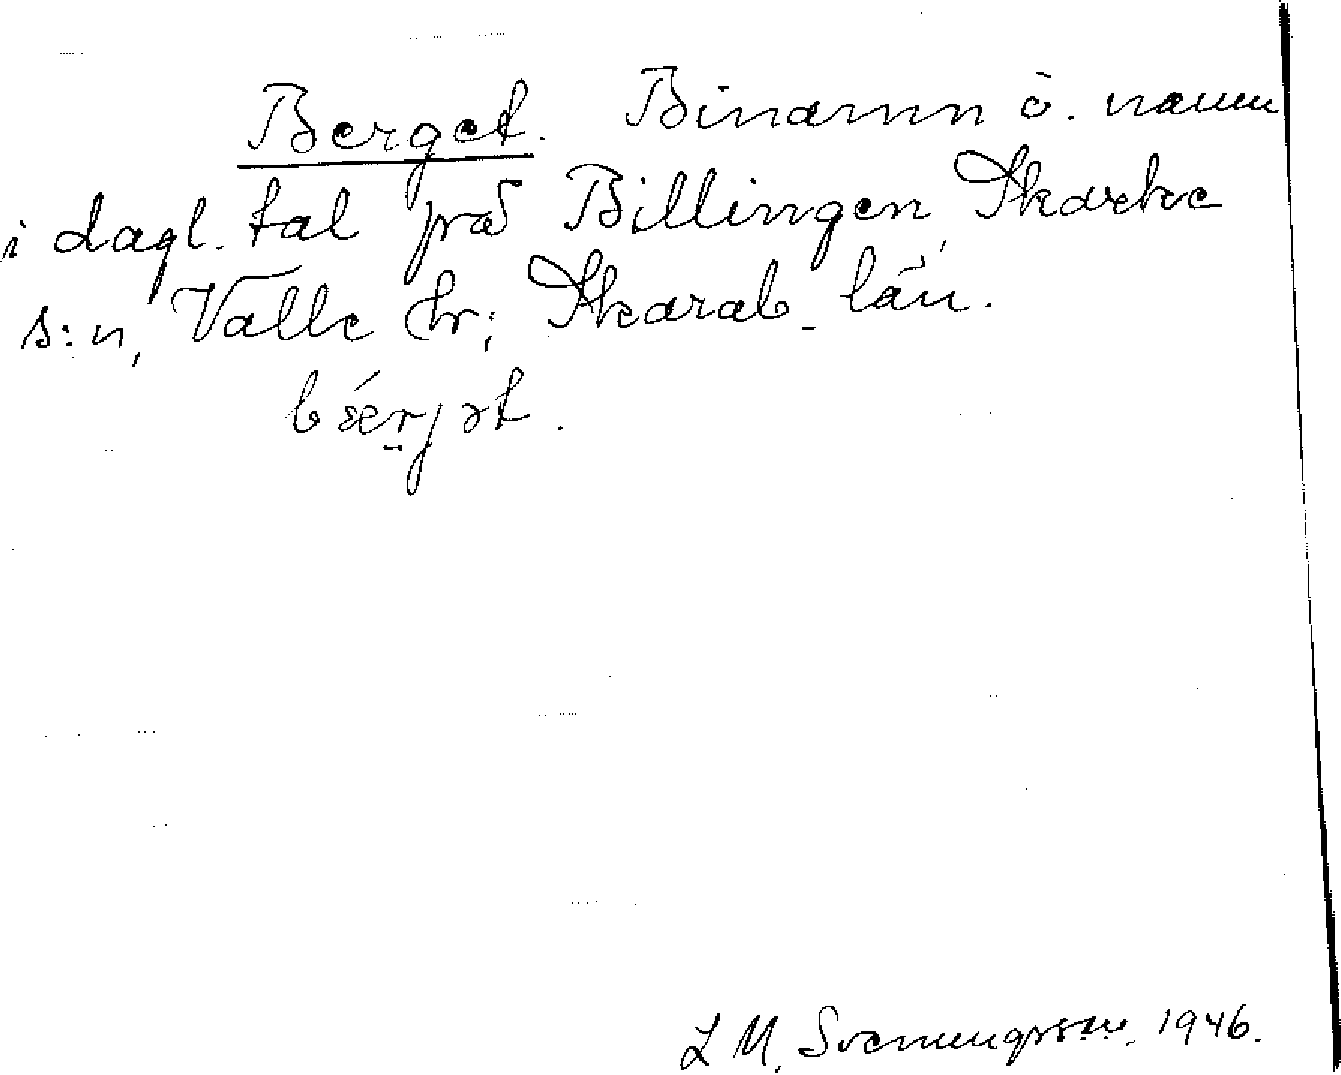 Berget. Binamn o. namn
i dagl. tal på Billingen, Skarke
s:n, Valle hr; Skarab. län.
bǽrjət.
L M. Svenungsson. 1946.